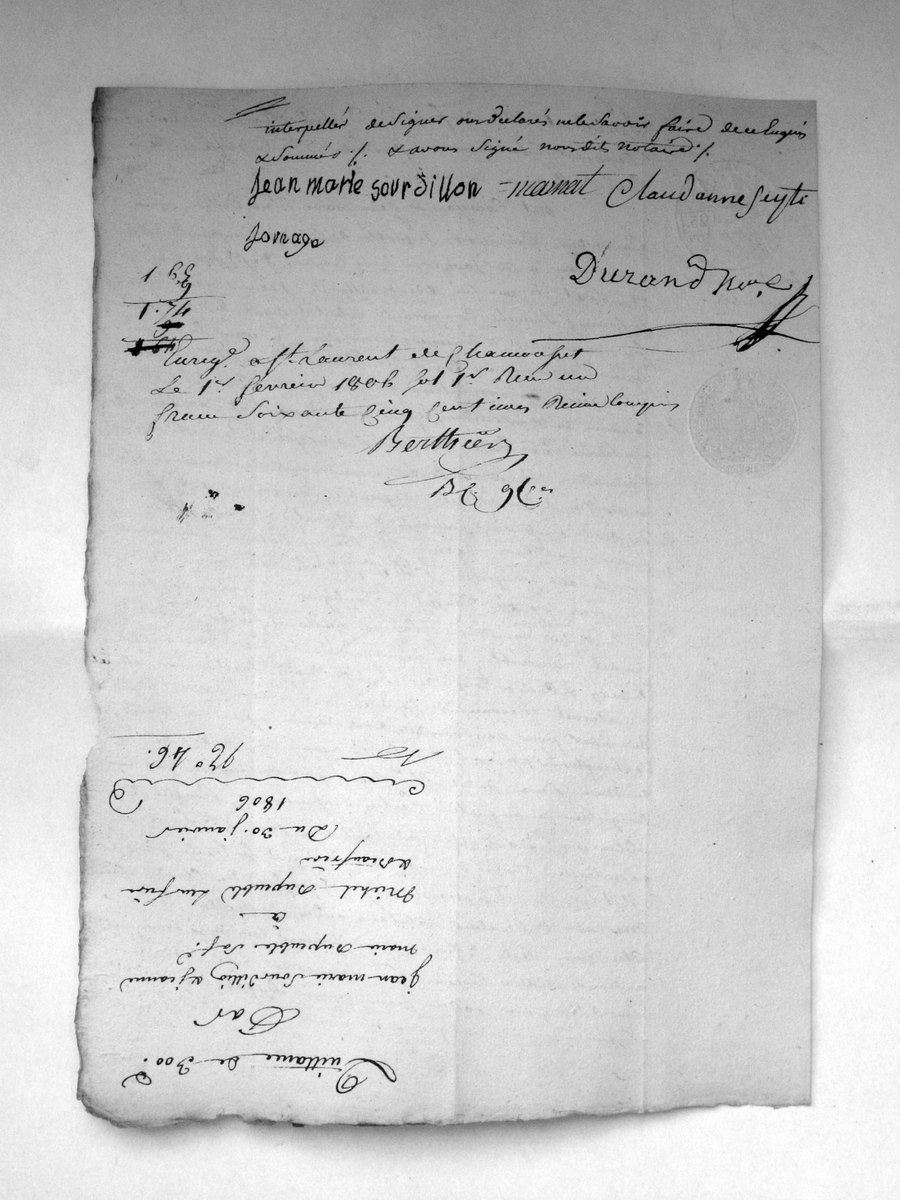 interpellés de signer ont déclarés ne le savoir faire de ce Enquis
& Sommés ·/. & avons Signé nous dit notaire ·/.
Jean marie Sourdillon Claudanne
Jomage
Durand No.re
1 65
1.74
1 64
Enreg.é a St. Laurent de Chamousset
Le 1er fevrier 1806 f 1 Reçu un
franc Soixante Cinq Centimes
Berthier
Quittance de 300.
Par
jean marie Sourdillon & jeanne
marie Dupeuble Sa f.e
à
Michel Dupeuble leur frère
& Beaufrère
Du 30. janvier
1806
N.o 46.